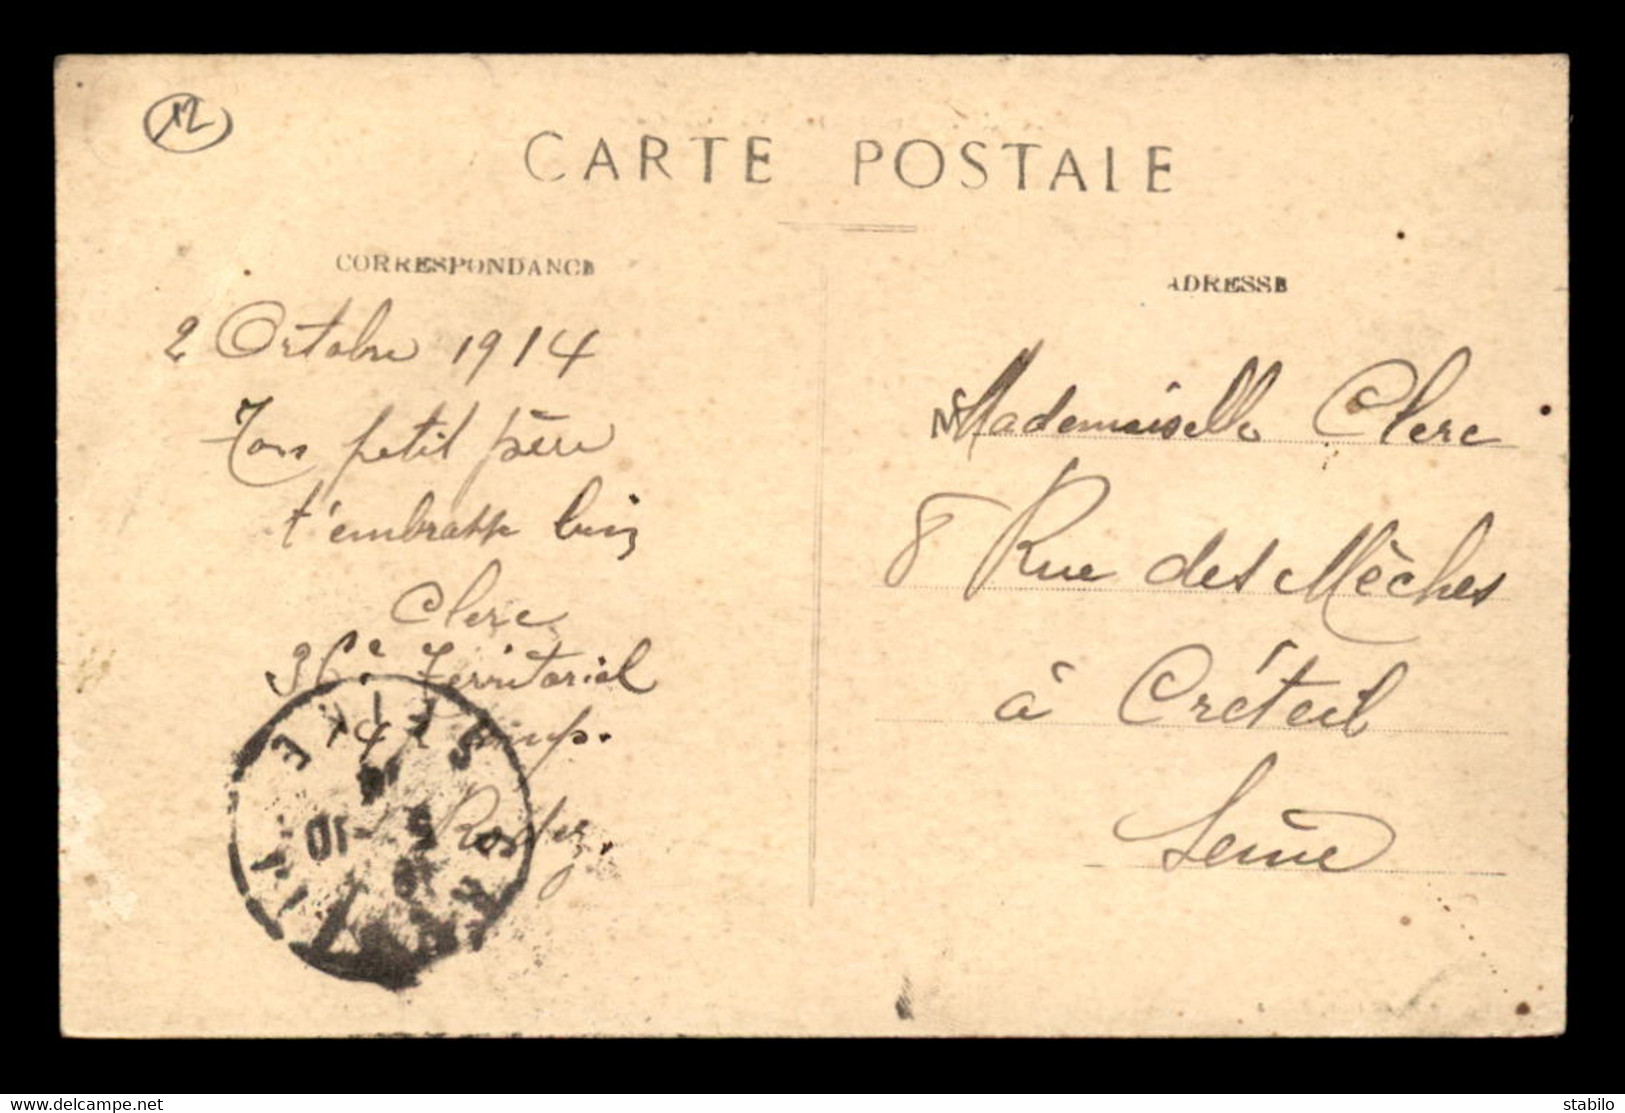 12
CARTE POSTALE
CORRESPONDANCE
2 Octobre 1914
Ton petit père
t'embrasse bien
Clerc
36e Territorial
Rodez.
ADRESSE
Mademoiselle Clerc
8 Rue des Mèches
à Créteil
Seine
www.delcampe.net
stabilo